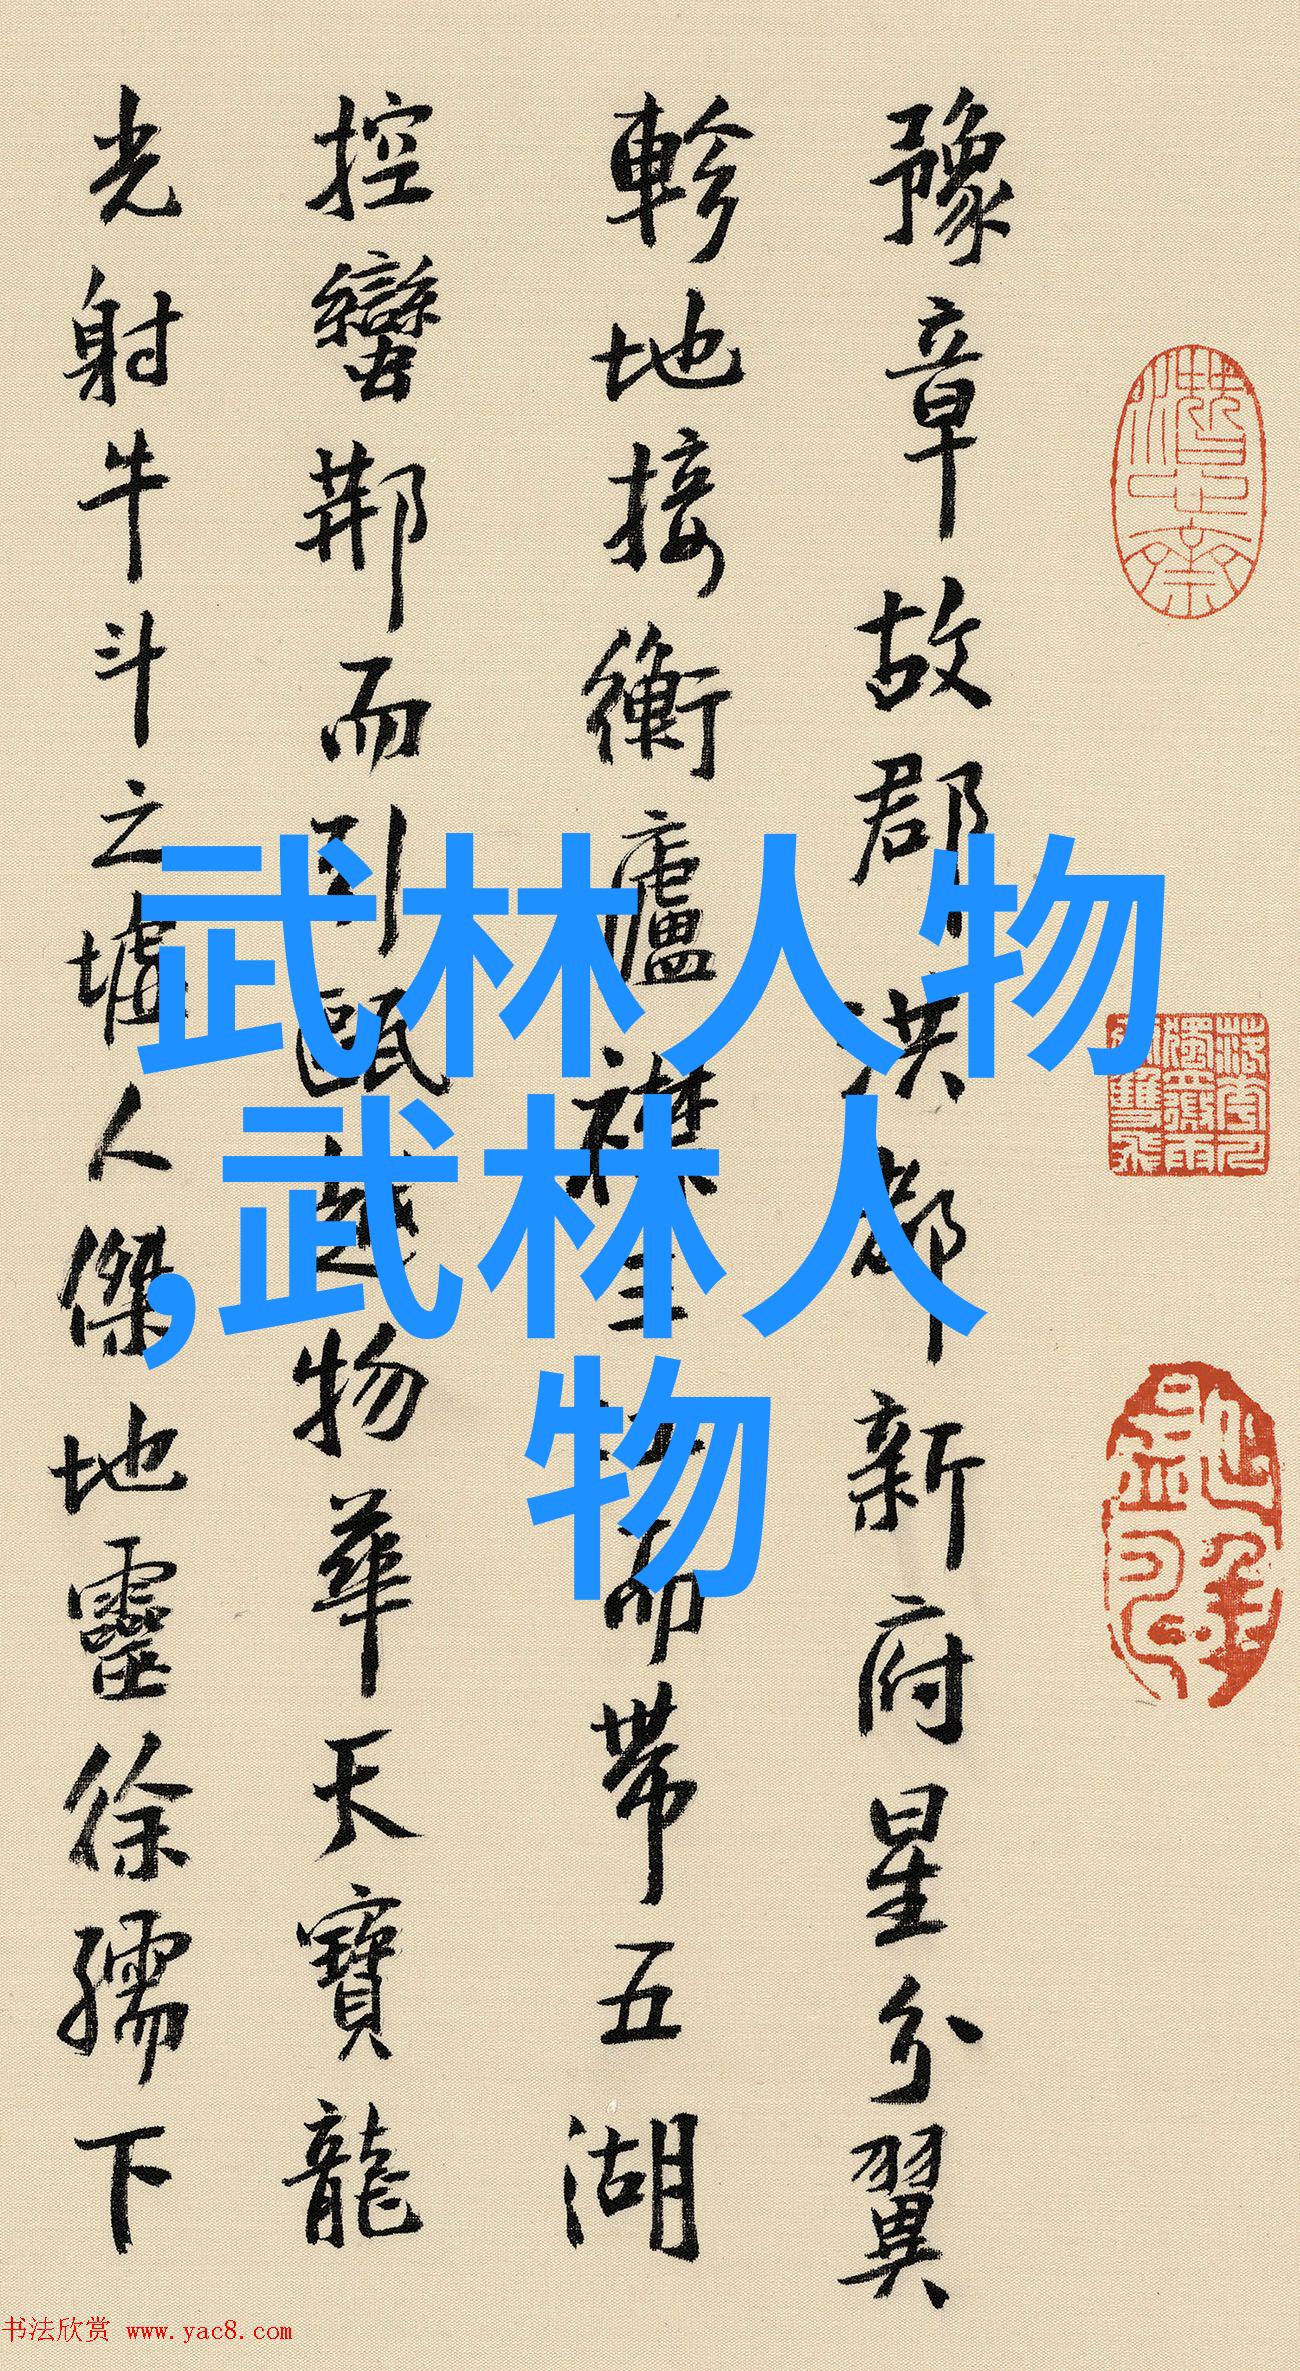 豫章故郡洪都新府星分翼
軫地接衡廬襟三江而帶五湖
控蠻荆而引甌越物華天寶龍
光射牛斗之墟人傑地靈徐孺下
武林人物
,武林人
物
书法欣赏 www.yac8.com